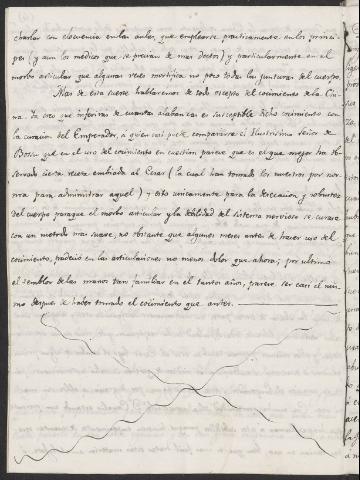 charlar con eloquencia en las aulas, que emplearse practicamente en los princi-
pes (y aun los medicos que se precian de mas doctos) y particularmente en el
morbo articular que algunas veces mortifica no poco todas las junturas del cuerpo.
Mas de esta suerte hablaremos de todo excepto del cocimiento de la Chi-
na. Ya creo que inferiras de quantas alabanzas es susceptible dicho cocimiento con
la curacion del Emperador, a quien casi puede compararse el Ilustrisimo Señor de
Bossu que en el uso del cocimiento en cuestion parece que es el que mejor ha ob-
servado cierta receta embiada al Cesar (la cual han tomado los nuestros por nor-
ma para administrar aquel) y esto unicamente para la desecacion y robustez
del cuerpo para que el morbo articular y la debilidad del sistema nervioso se curase
con un metodo mas suave, no obstante que algunos meses antes de hacer uso del
cocimiento, padecio en las articulaciones no menos dolor que ahora; por ultimo
el temblor de las manos tan familiar en el tantos años, parece ser casi el mis-
mo despues de haber tomado el cocimiento que antes.